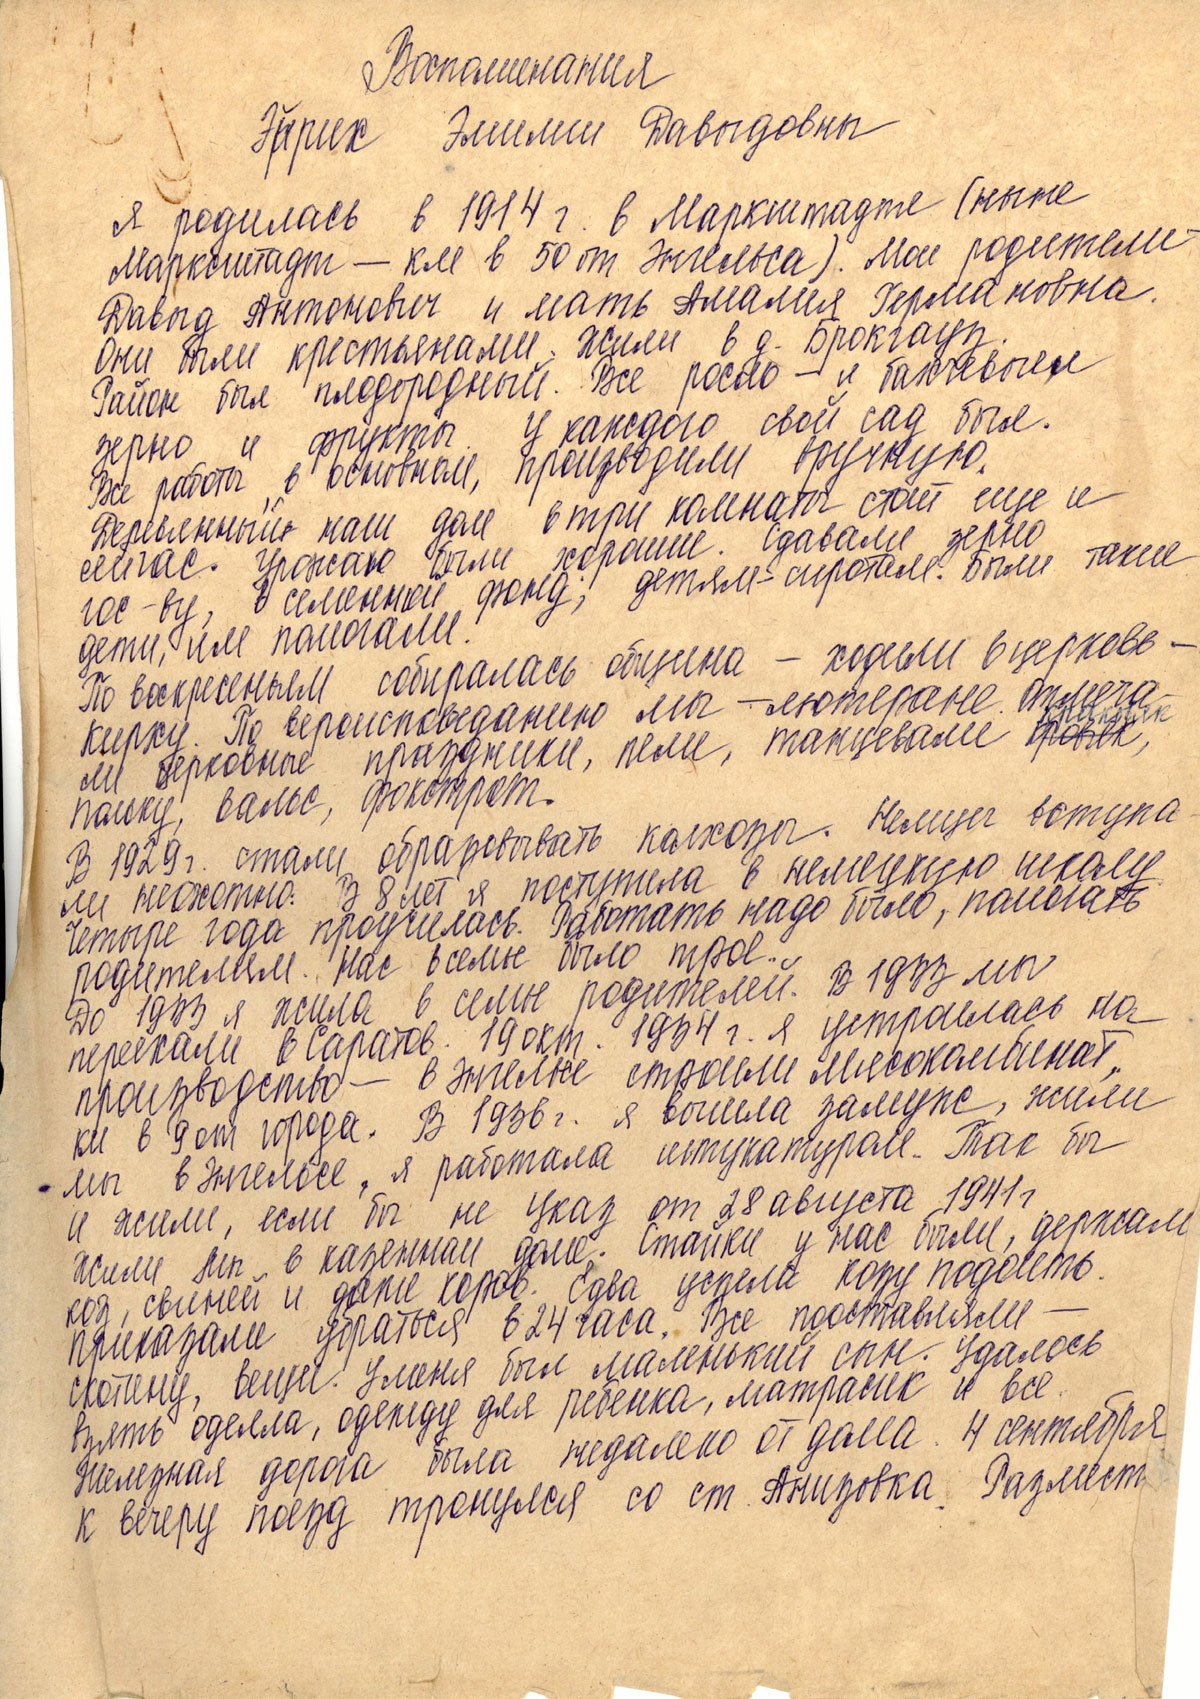 Воспоминания
Эйрих Эмилии Давыдовны
Я родилась в 1914 г. в Марксштадте (ныне
Марксштадт — км в 50 от Энгельса). Мои родители —
Давыд Антонович и мать Амалия Германовна.
Они были крестьянами. Жили в д. Брокгауз.
Район был плодородный. Все росло — и бахчевые
зерно и фрукты. У каждого свой сад был.
Все работы, в основном, производили вручную.
Деревянный наш дом в три комнаты стоит еще и
сейчас. Урожаи были хорошие. Сдавали зерно
гос-ву, в семенной фонд, детям-сиротам. Были такие
дети, им помогали.
По воскресеньям собиралась община — ходили в церковь —
кирху. По вероисповеданию мы — лютеране. Отмеча-
ли церковные праздники, пели, танцевали
польку, вальс, фокстрот.
В 1929 г. стали образовывать колхозы. Немцы вступа-
ли неохотно. В 8 лет я поступила в немецкую школу
Четыре года проучилась. Работать надо было, помогать
родителям. Нас в семье было трое.
До 1933 я жила в семье родителей. В 1933 мы
переехали в Саратов. 19 окт. 1934 г. я устроилась на
производство — в Энгельсе строили мясокомбинат,
км в 9 от города. В 1936 г. я вышла замуж, жили
мы в Энгельсе, я работала штукатуром. Так бы
и жили, если бы не Указ от 28 августа 1941 г
Жили мы в казенном доме. Стайки у нас были, держали
коз, свиней и даже коров. Едва успела козу подоить.
Приказали убраться в 24 часа. Все пооставляли —
скотину, вещи. У меня был маленький сын. Удалось
взять одеяла, одежду для ребенка, матрасик и все.
Железная дорога была недалеко от дома. 4 сентября
к вечеру поезд тронулся со ст. Анизовка. Размест